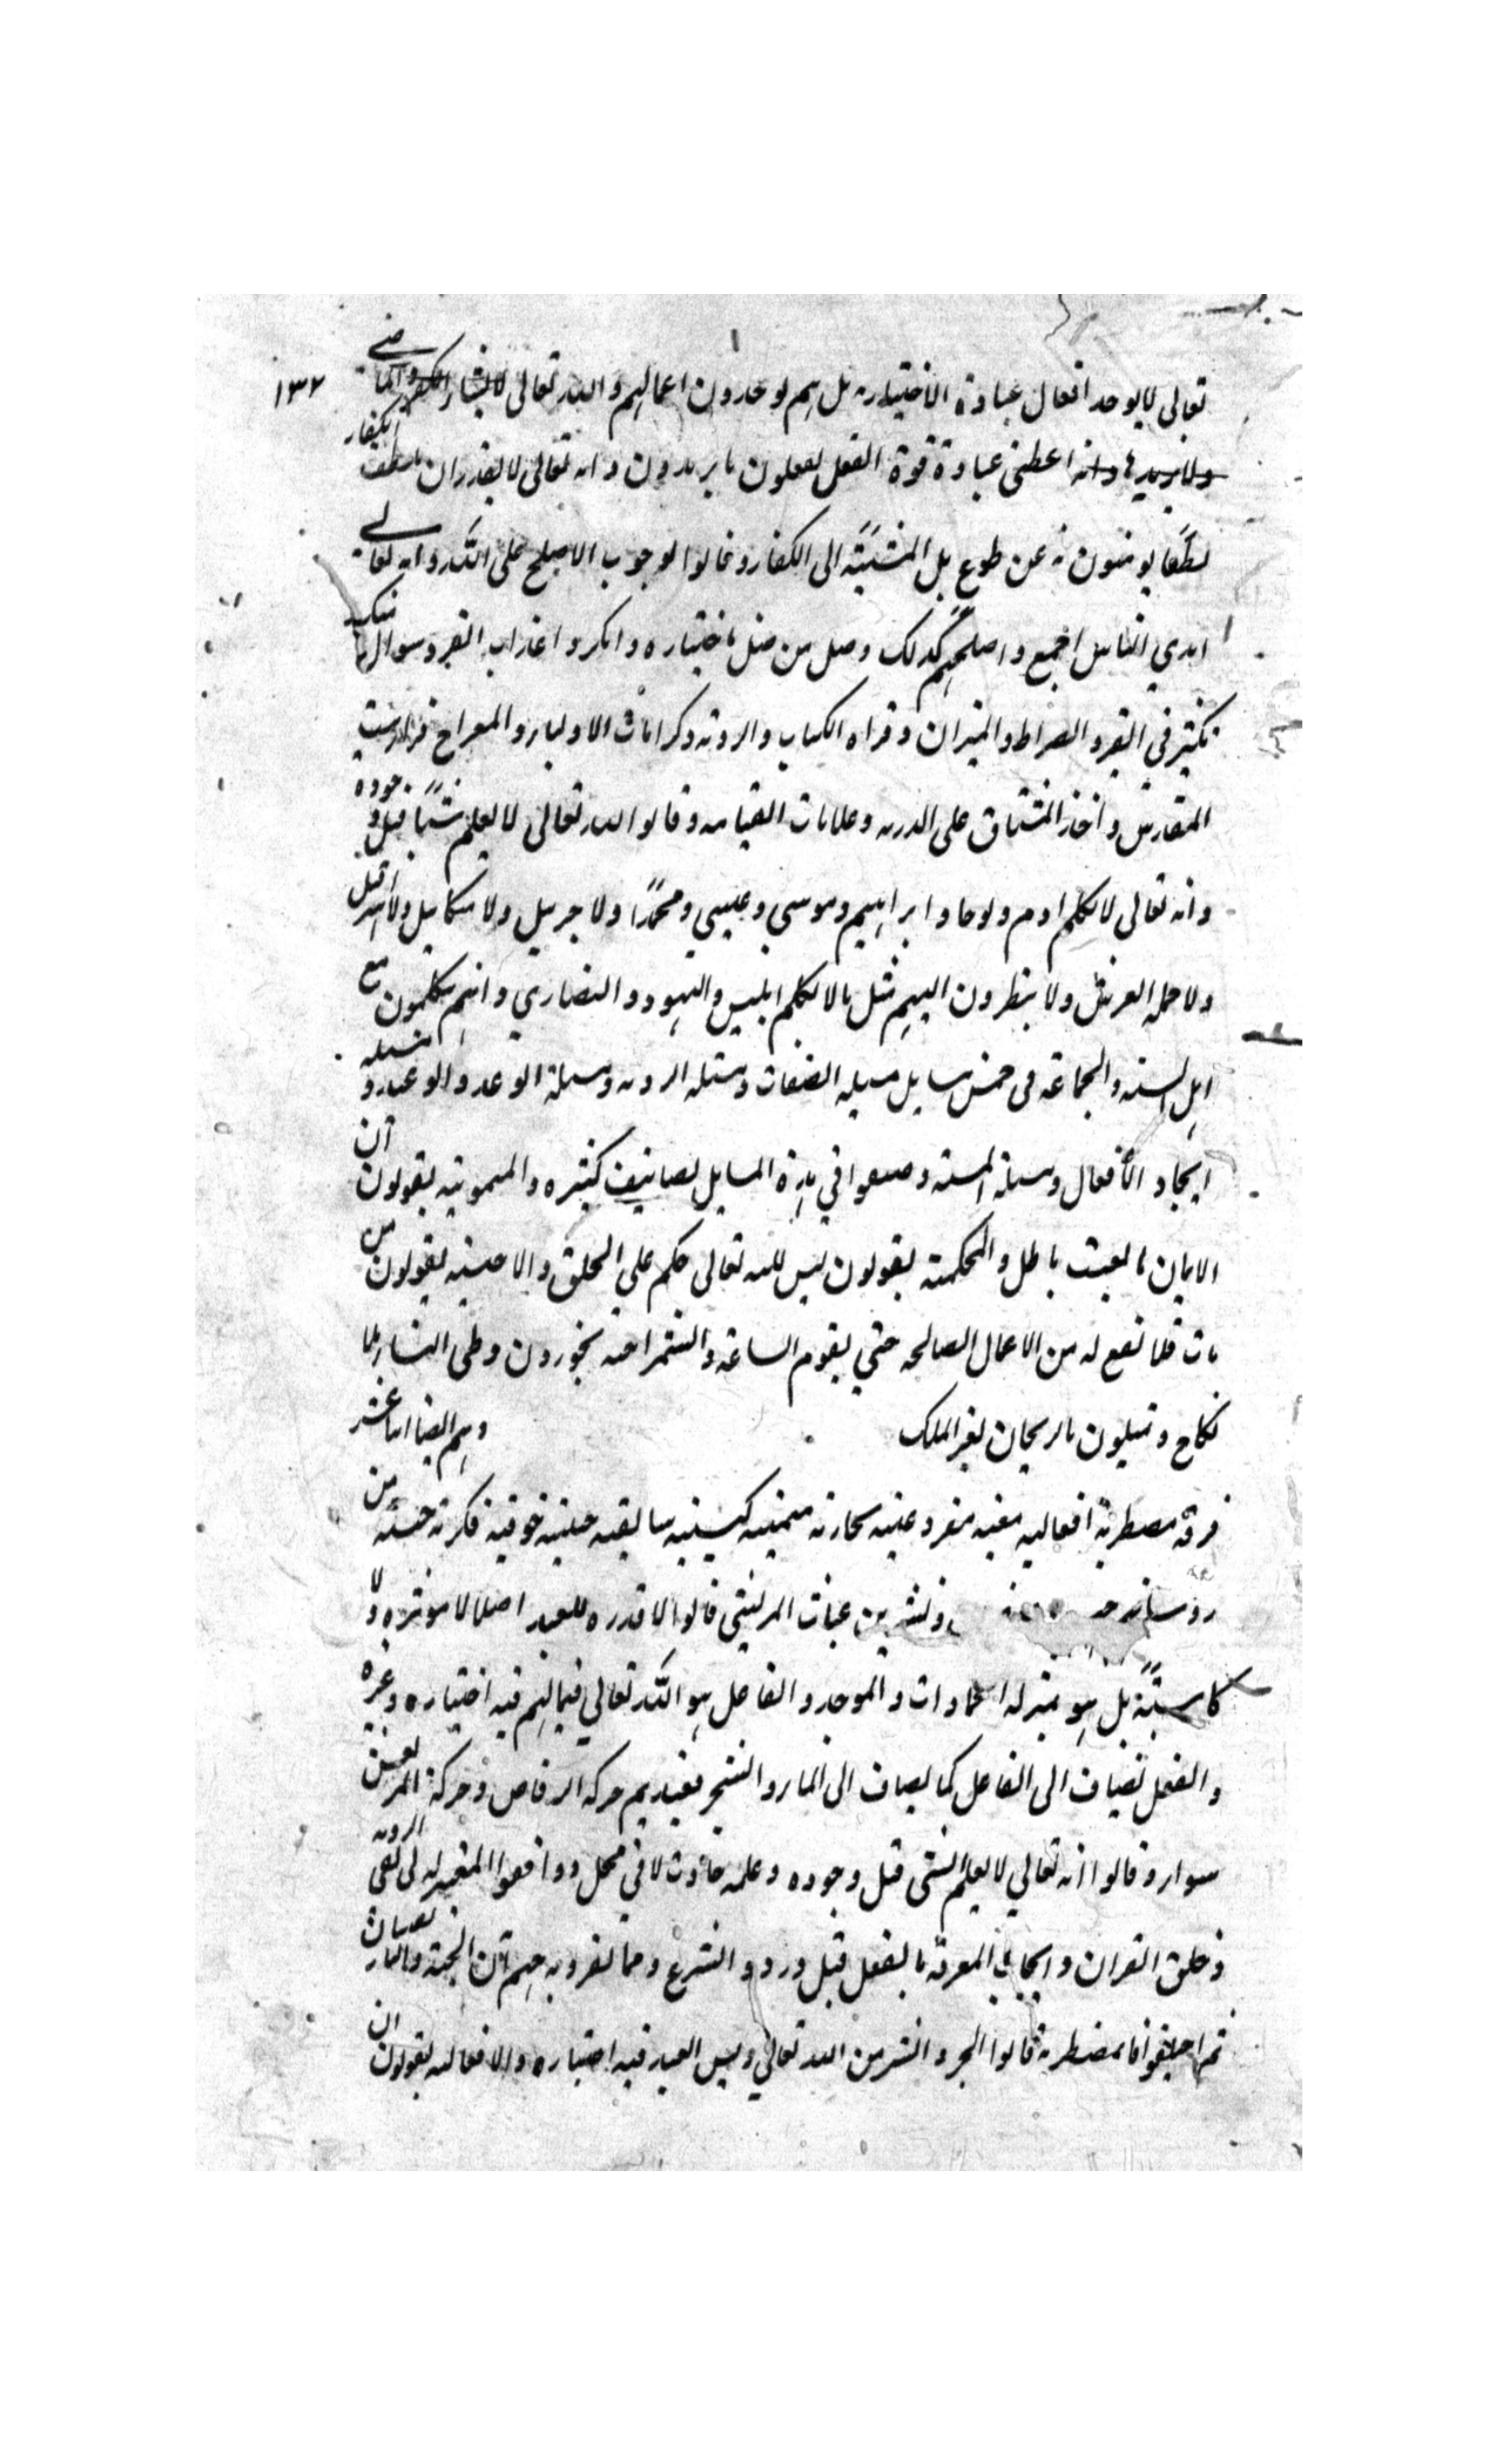 ١٣٢
تعالى لا يوجد افعال عباده الاختياريه بل هم يوجدون اعمالهم والله تعالى لا يشاء الكفر والمعاصي
ولا يريدها وانه اعطى عباده قوة الفعل يفعلون ما يريدون وانه تعالى لا يقدر ان يلطف الكفار
لطفا يومنون به عن طوع بل المشيئة الى الكفار وقالوا لوجوب الاصلح على الله وانه تعالى
اهدي الناس اجمع واصلحهم كذلك وضل من ضل باختياره وانكروا عذاب القبر وسوال منكر
نكير في القبر والصراط والميزان وقراه الكتاب والرويه وكرامات الاولياء والمعراج من بيت
المقدس واخذ الميثاق على الذريه وعلامات القيامه وقالوا الله تعالى لا يعلم شيئا قبل وجوده
وانه تعالى لا يكلم ادم ونوحا وابراهيم وموسى وعيسي ومحمدا ولا جبريل ولا ميكاييل ولا اسرافيل
ولا حمله العرش ولا ينظرون اليهم مثل ما لا يكلم ابليس واليهود والنصاري وانهم يتكلمون مع
اهل السنه والجماعة في خمس مسايل مسيله الصفات ومسئله الرويه ومسيلة الوعد والوعيد ومسيله
ايجاد الافعال ومسيلة المشيه وصنعوا في هذه المسايل تصانيف كثيره والميمونيه يقولون ان
الايمان بالغيب باطل والمحكميه يقولون ليس لله تعالى حكم على الخلق والاخنسيه يقولون من
مات فلا تقع له من الاعمال الصالحه حتي يقوم الساعة والشمراخيه يجوزون وطي النساء بلا
نكاح و بالريحان بغير الملك وهم ايضا اثنا عشر
فرقه مضطرية افعاليه معيه مفروغيه نجاريه متمنيه كسبيه سابقيه حبيبيه خوفيه فكريه حسبيه من
بن غياث المريسي قالوا لا قدره للعبد اصلا لا موثره ولا
كاسبة بل هو بمنزله الجمادات والموجد والفاعل هو الله تعالي فيما لهم فيه اختياره وغيره
والفعل يضاف الى الفاعل كما يضاف الى الماء والشجر فعندهم حركه الرقاص وحركة المرتعش
سواء وقالوا انه تعالي لا يعلم الشي قبل وجوده وعلمه حادث لا في محل ووافقوا المعتزله في نفي الرويه
وخلق القران وايجاب المعرفة بالعقل قبل ورود الشرع ومما تفرد به جهم ان الجنة والنار يفنيان
ثم اختلفوا فالمضطرية قالوا الخير والشر من الله تعالي وليس العبد فيه اختياره والافعاليه يقولون ان